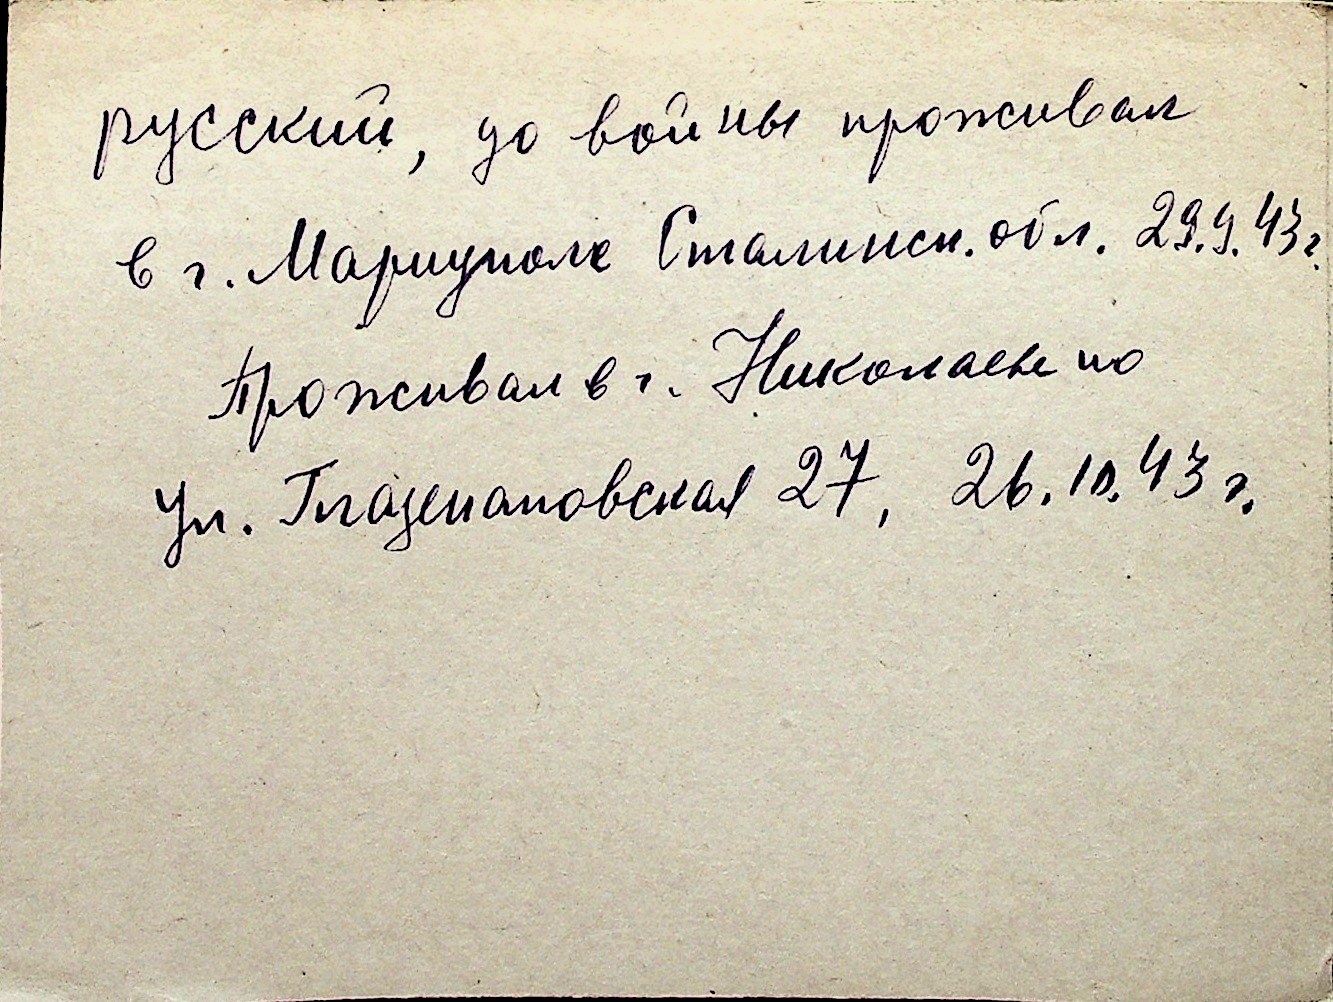 русский, до войны проживал
в г. Мариуполе Сталинск. обл. 29.9.43г.
Проживал в г. Николаеве по
ул. Глазенаповская 27, 26.10.43 г.